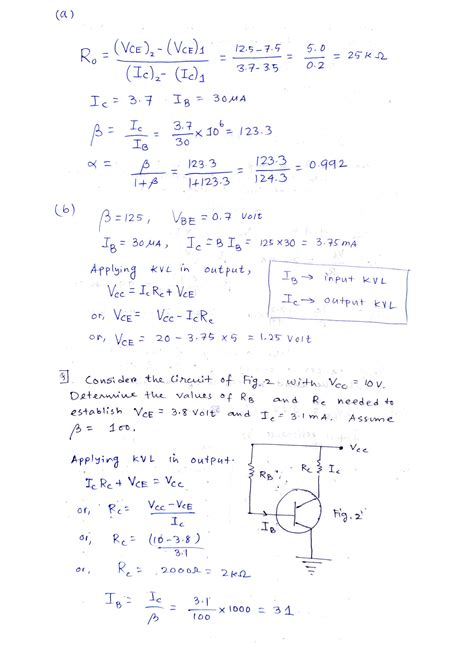 (a)
R₀ = (VCE)₂ - (VCE)1 / (Ic)₂ - (Ic)1 = 12.5-7.5 / 3.7-3.5 = 5.0 / 0.2 = 25 k Ω
Ic = 3.7 IB = 30 μA
β = Ic / IB = 3.7 / 30 × 10⁶ = 123.3
α = β / 1+β = 123.3 / 1+123.3 = 123.3 / 124.3 = 0.992
(b)
β = 125, VBE = 0.7 Volt
IB = 30 μA, Ic = B IB = 125 × 30 = 3.75 mA
Applying KVL in output,
Vcc = IcRc + VCE
or, VCE = Vcc - IcRc
or, VCE = 20 - 3.75 × 5 = 1.25 Volt
IB → input KVL
Ic → output KVL
3. Consider the circuit of Fig. 2 with Vcc = 10 V.
Determine the values of RB and Rc needed to
establish VCE = 3.8 Volt and Ic = 3.1 mA. Assume
β = 100.
Applying KVL in output.
Ic Rc + VCE = Vcc
or, Rc = Vcc - VCE / Ic
or, Rc = (10 - 3.8) / 3.1
or, Rc = 2000Ω = 2kΩ
IB = Ic / β = 3.1 / 100 × 1000 = 31
Vcc
RB
Rc
Ic
IB
Fig. 2